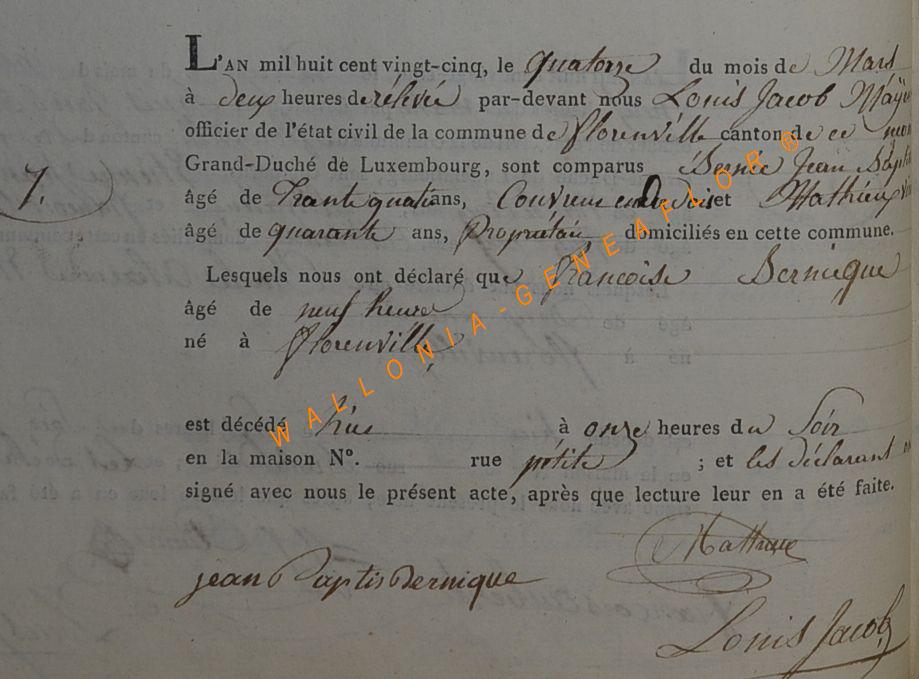 L'AN mil huit cent vingt-cinq, le quatorze du mois de Mars
à deux heures de rélevée par-devant nous Louis Jacob Mäy
officier de l'état civil de la commune de florenville canton de ce
7. Grand-Duché de Luxembourg, sont comparus Jean
âgé de ans, Couvreur et Mathieu
âgé de quarante ans, Propriétair domiciliés en cette commune.
Lesquels nous ont déclaré que francoise Bernique
âgé de neuf heure
né à florenville
est décédé hier à onze heures du Soir
en la maison N°. rue pètite ; et les déclarant
signé avec nous le présent acte, après que lecture leur en a été faite.
Mathieu
jean Baptis Bernique
Louis Jacob
WALLONIA-GENEAFLOR®